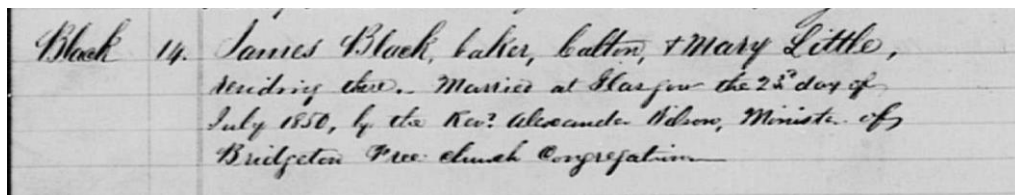 Black 14. James Black, baker, Calton, & Mary Little,
residing there. Married at Glasgow the day of
July 1850, by the Revd. Alexander Wilson, Minister of
Bridgeton Free church Congregation